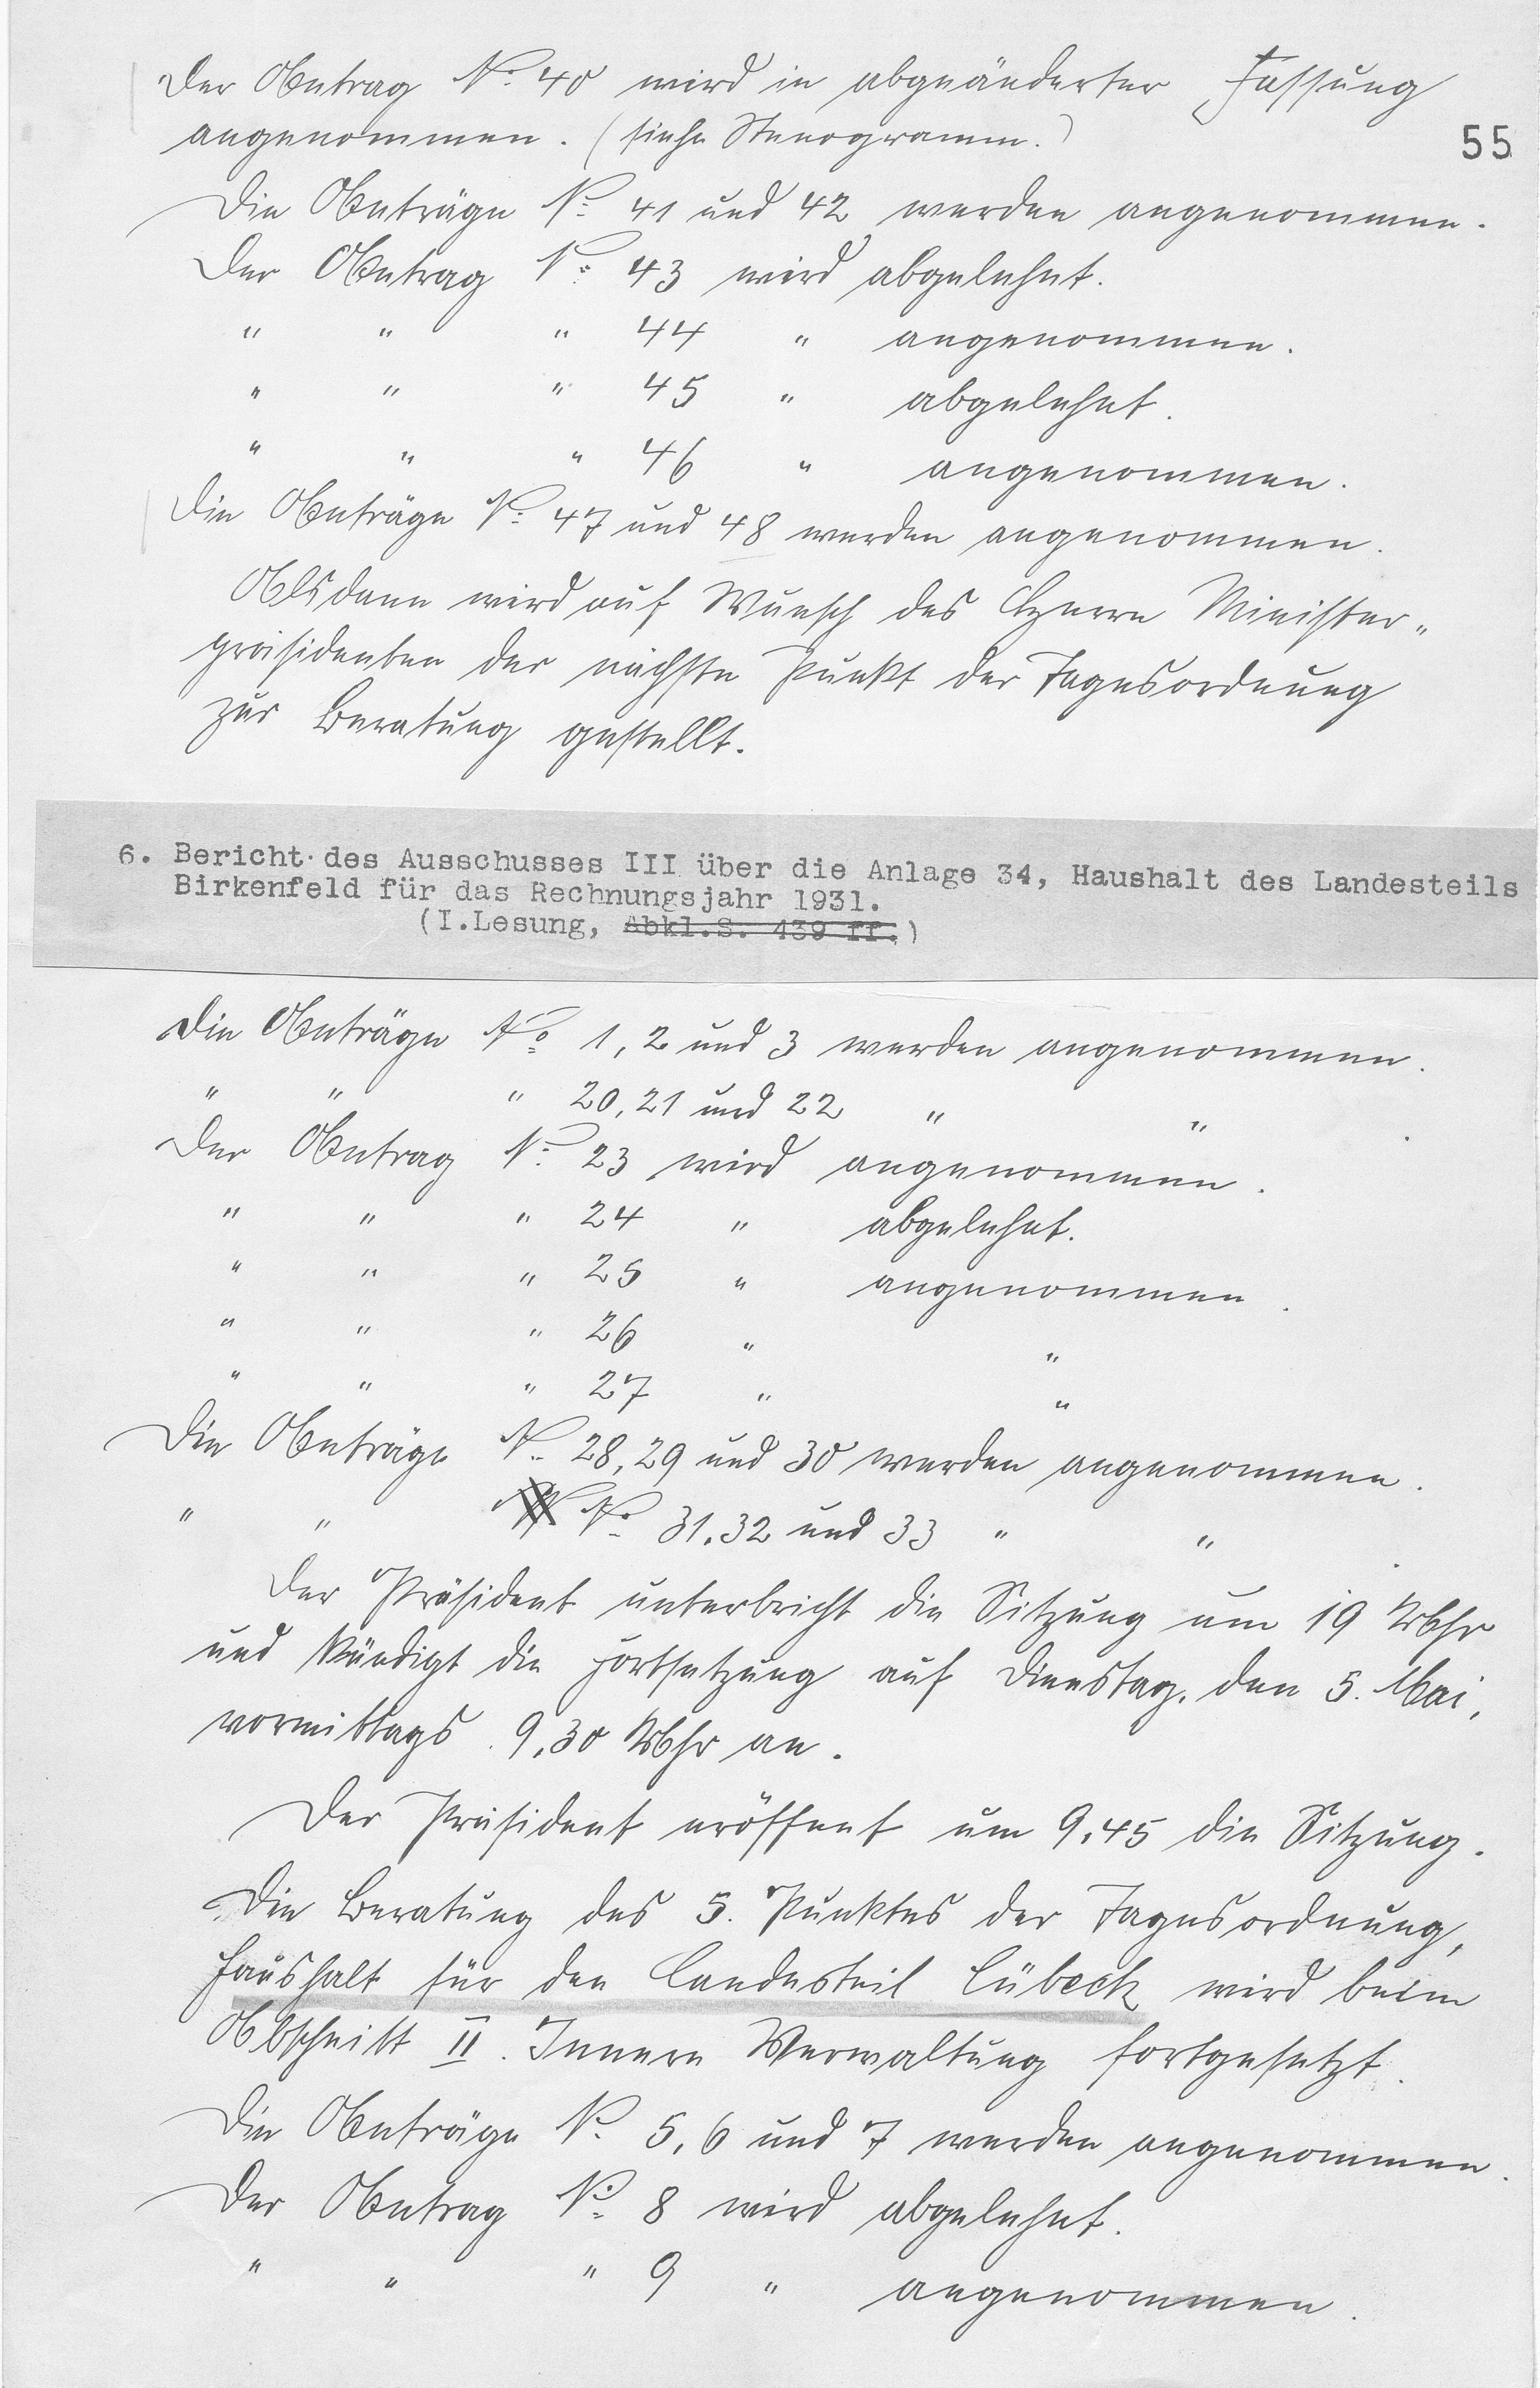 Der Antrag No. 40 wird in abgeänderter Fassung
angenommen. (siehe Stenogramm.)
55
Die Anträge No. 41 und 42 werden angenommen.
Der Antrag No. 43 wird abgelehnt.
" " " 44 " angenommen.
" " " 45 " abgelehnt.
" " " 46 " angenommen.
Die Anträge No. 47 und 48 werden angenommen.
Alsdann wird auf Wunsch des Herrn Minister-
präsidenten der nächste Punkt der Tagesordnung
zur Beratung gestellt.
6. Bericht des Ausschusses III über die Anlage 34, Haushalt des Landesteils
Birkenfeld für das Rechnungsjahr 1931.
(I.Lesung, Abkl.S. 439 ff.)
Die Anträge No. 1, 2 und 3 werden angenommen.
" " " 20, 21 und 22 " "
Der Antrag No. 23 wird angenommen.
" " " 24 " abgelehnt.
" " " 25 " angenommen.
" " " 26 " "
" " " 27 " "
Die Anträge No. 28, 29 und 30 werden angenommen.
" " No. 31, 32 und 33 " "
Der Präsident unterbricht die Sitzung um 19 Uhr
und kündigt die Fortsetzung auf Dienstag, den 5. Mai,
vormittags 9,30 Uhr an.
Der Präsident eröffnet um 9,45 die Sitzung.
Die Beratung des 5. Punktes der Tagesordnung,
Haushalt für den Landesteil Lübeck wird beim
Abschnitt II. Innere Verwaltung fortgesetzt.
Die Anträge No. 5, 6 und 7 werden angenommen.
Der Antrag No. 8 wird abgelehnt.
" " " 9 " angenommen.